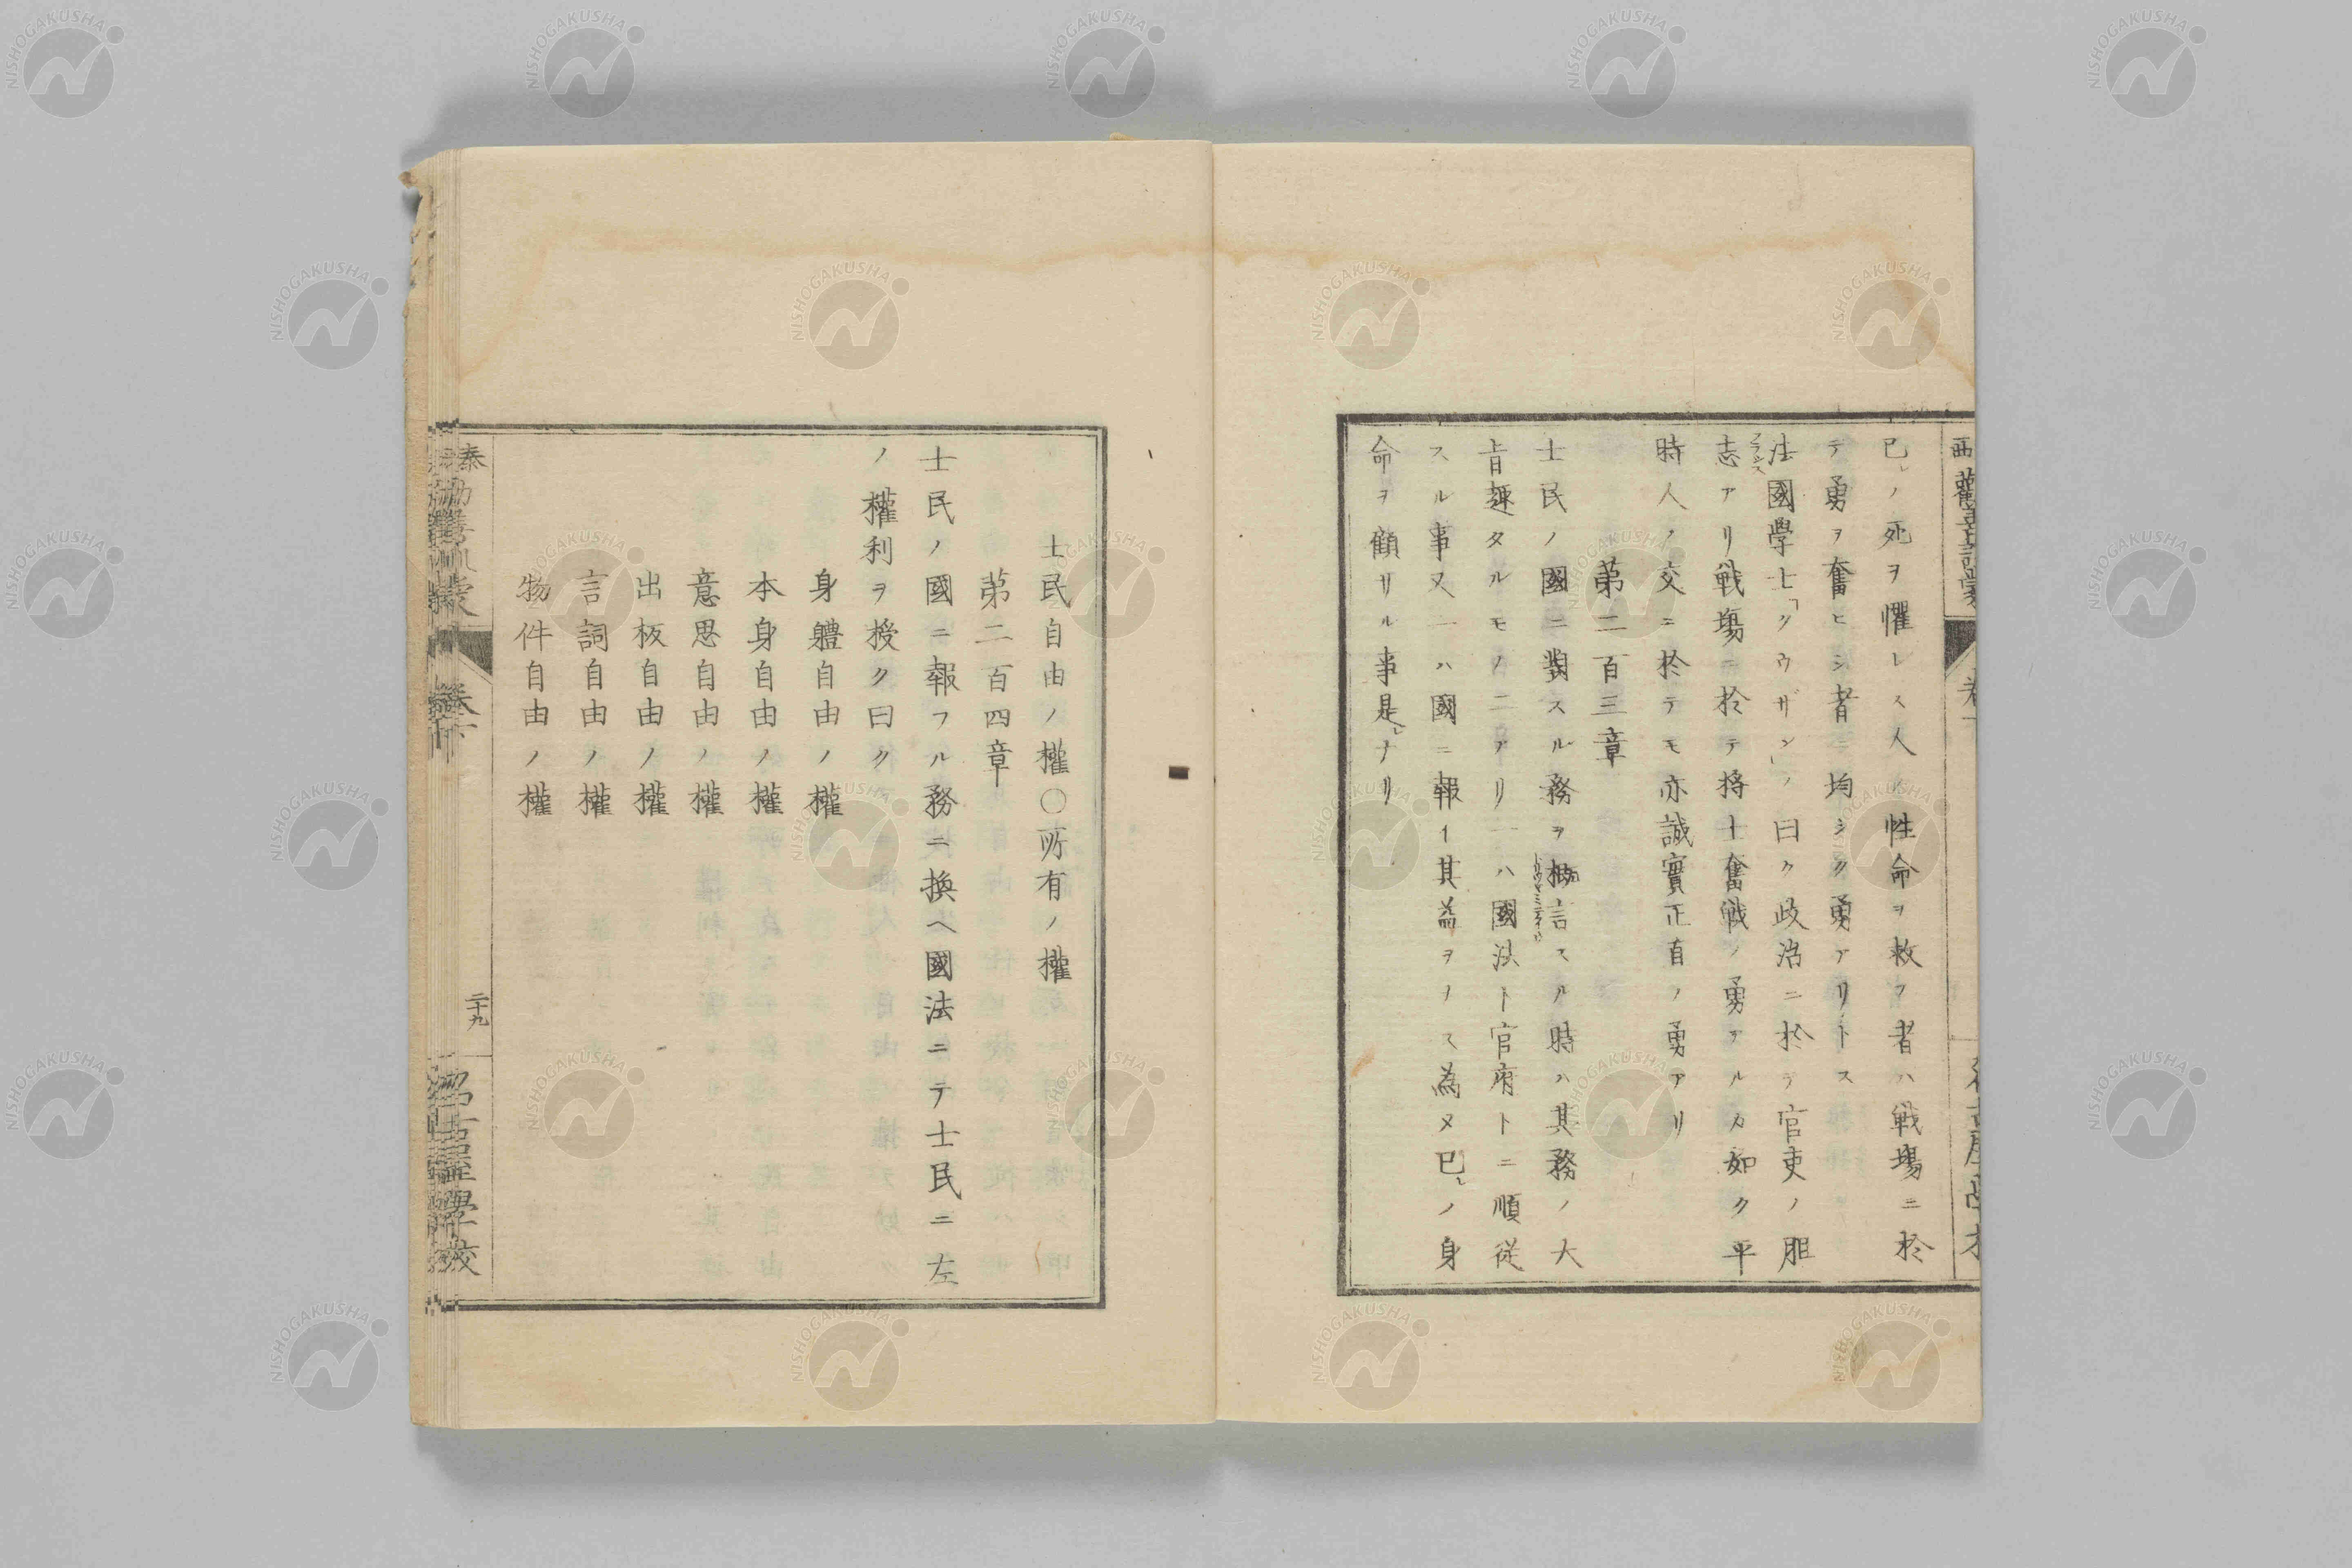 已レノ死ヲ懼レス人ノ性命ヲ救フ者ハ戦場ニ於
テ勇ヲ奮ヒシ者ニ均シク勇アリトス
法國學士「クウザン」ノ曰ク政治ニ於テ官吏ノ胆
フランス
志アリ戦塲ニ於テ将士奮戦ノ勇アルカ如ク平
時人ノ交ニ於テモ亦誠實正直ノ勇アリ
第二百三章
士民ノ國ニ對スル務ヲ概言スル時ハ其務ノ大
旨趣タルモノ二アリ一ハ國法ト官府トニ順従
スル事又一ハ國ニ報イ其益ヲナス為メ已レノ身
命ヲ顧リル事是レナリ
士民自由ノ權〇所有ノ權
第二百四章
士民ノ國ニ報フル務ニ換ヘ國法ニテ士民ニ左
ノ權利ヲ授ク曰ク
身軆自由ノ權
本身自由ノ權
意思自由ノ權
出板自由ノ權
言詞自由ノ權
物件自由ノ權
二十九
NISHOGAKUSHA